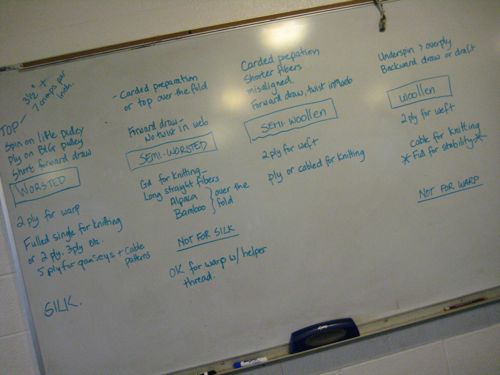 3½" +
7 crimps per
inch.
TOP -
Spin on little pulley
Ply on BIG pulley
Short forward draw
WORSTED
2 ply for warp
Fulled single for knitting
or 2 ply, 3 ply etc.
5 ply for ganseys + Cable
patterns
SILK.
- Carded preparation
or top over the fold
Forward draw -
No twist in web
SEMI-WORSTED
Gd for knitting -
Long straight fibers
Alpaca
Bamboo
over the
fold
NOT FOR SILK
OK for warp w/ helper
thread.
Carded prepation
Shorter fibers
misaligned.
Forward draw, twist in web
SEMI-WOOLLEN
2 ply for weft
ply or cabled for knitting
Underspin ? overply
Backward draw or draft
WOOLLEN
2 ply for weft
Cable for knitting
* Full for stability *
NOT FOR WARP